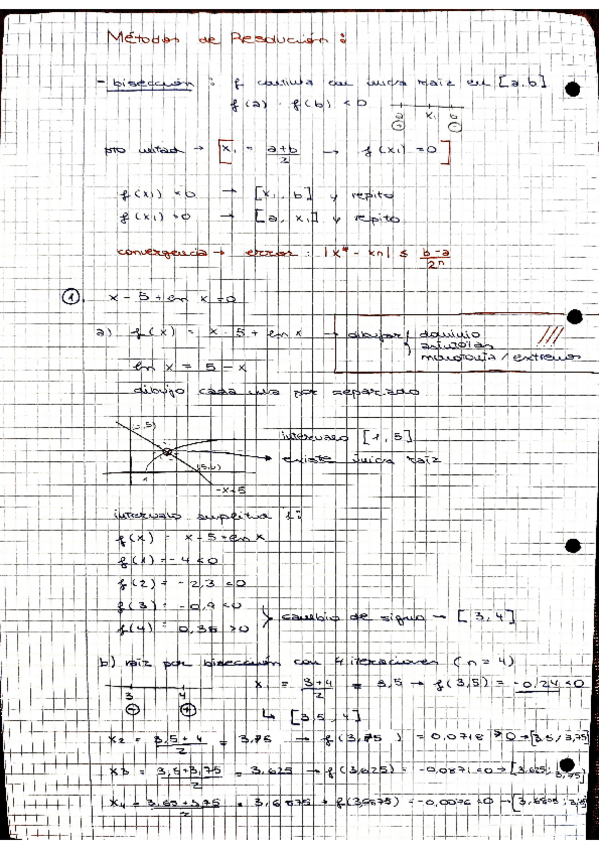 Métodos de Resolución :
- bisección : f continua con única raiz en [a,b]
f(a) · f(b) < 0
a x₁ b
⊕ ⊖
pto mitad → [x₁ = a+b/2 → f(x₁) = 0]
f(x₁) < 0 → [x₁, b] y repito
f(x₁) > 0 → [a, x₁] y repito
convergencia → error : |x* - xn| ≤ b-a/2ⁿ
①. x - 5 + ln x = 0
a) f(x) = x - 5 + ln x → dibujar { dominio
asíntotas
monotonía / extremos
ln x = 5 - x
dibujo cada una por separado
intervalo [1,5]
existe única raiz
1
-x+5
intervalo amplitud 1:
f(x) = x - 5 + ln x
f(1) = -4 < 0
f(2) = -2,3 < 0
f(3) = -0,9 < 0
f(4) = 0,38 > 0
} cambio de signo → [3,4]
b) raiz por bisección con 4 iteraciones (n = 4)
3 4
⊖ ⊕
x₁ = 3+4/2 = 3,5 → f(3,5) = -0,24 < 0
↳ [3,5, 4]
x2 = 3,5+4/2 = 3,75 → f(3,75) = 0,0718 > 0 → [3,5, 3,75]
x3 = 3,5+3,75/2 = 3,625 → f(3,625) = -0,0871 < 0 → [3,625, 3,75]